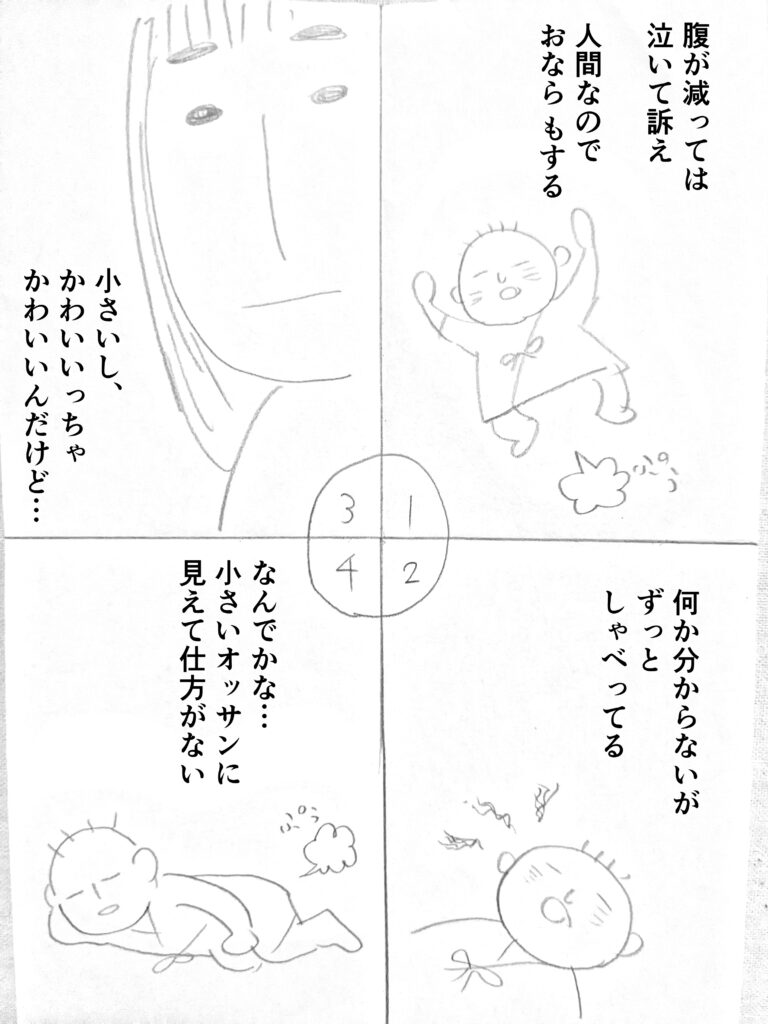 腹が減っては
泣いて訴え
人間なので
おならもする
ぷぅ
1
2
3
4
何か分からないが
ずっと
しゃべってる
小さいし、
かわいいっちゃ
かわいいんだけど…
なんでかな…
小さいオッサンに
見えて仕方がない
ぷぅ